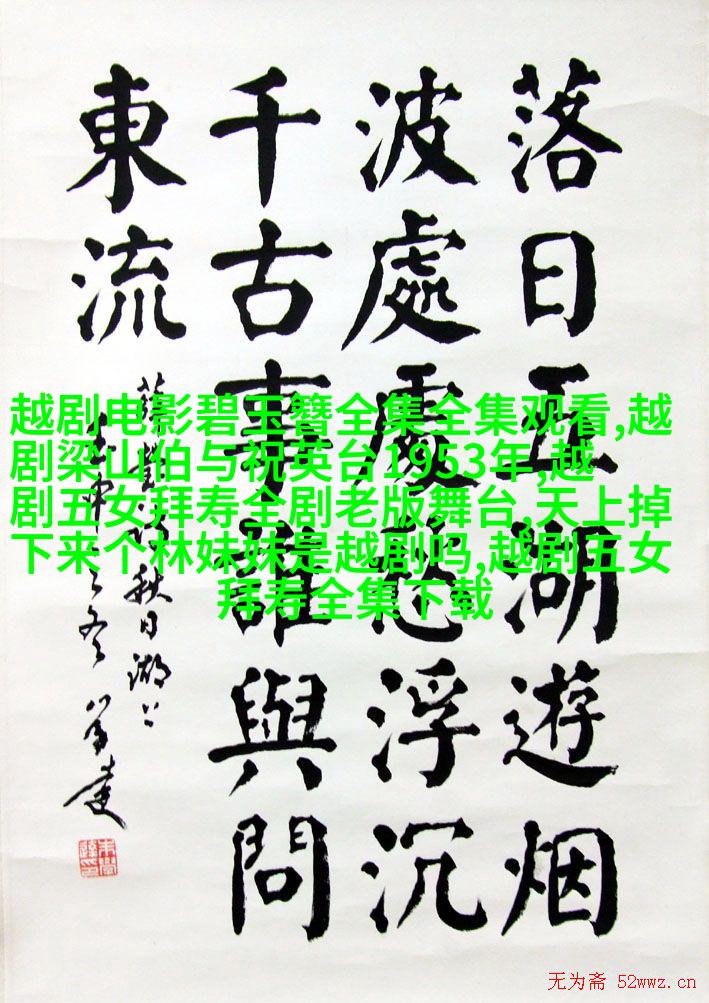 落日五湖遊烟
波處處愁浮沉
千古事誰與問
東流
薛瑩詩秋日湖上
越剧电影碧玉簪全集全集观看,越
剧梁山伯与祝英台1953年,越
剧五女拜寿全剧老版舞台,天上掉
下来个林妹妹是越剧吗,越剧五女
拜寿全集下载
无为斋 52wwz.cn